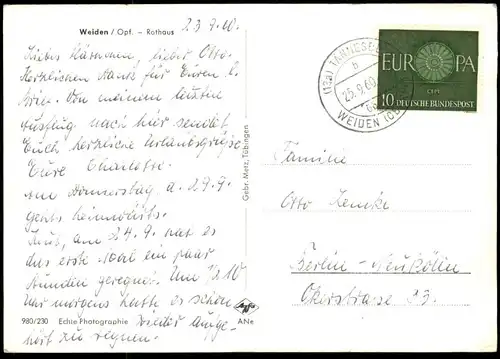 Weiden / Opf. – Rathaus
23.9.60.
Liebes Hännchen, lieber Otto.
Herzlichen Dank für Euren l.
Brief. Von meinem
Ausflug nach hier sendet
Euch herzliche Urlaubsgrüße
Eure Charlotte.
Am Donnerstag d. 29.9.
gehts heimwärts.
Heut, am 24.9. hat es
das erste Mal ein paar
Stunden geregnet. Um 1/2 10
Uhr morgens hatte es schon
wieder aufge-
hört zu regnen.
980/230 Echte Photographie
ANe
Gebr. Metz, Tübingen
(13a)
b
25.9.60
WEIDEN
EUROPA
CEPT
10 DEUTSCHE BUNDESPOST
Familie
Otto Lemke
Berlin-Neukölln
Okerstrasse 23.